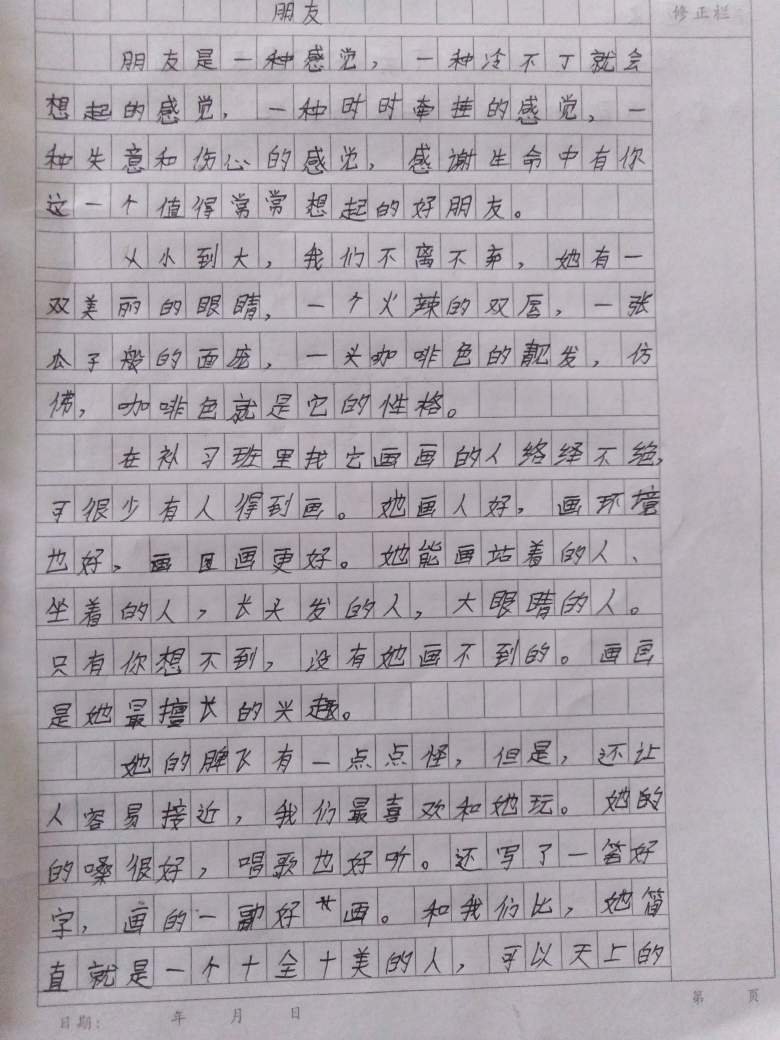 朋友
修正栏
朋友是一种感觉，一种冷不丁就会
想起的感觉，一种时时牵挂的感觉，一
种失意和伤心的感觉，感谢生命中有你
这一个值得常常想起的好朋友。
从小到大，我们不离不弃，她有一
双美丽的眼睛，一个火辣的双唇，一张
瓜子般的面庞，一头咖啡色的靓发，仿
佛，咖啡色就是它的性格。
在补习班里找它画画的人络绎不绝，
可很少有人得到画。她画人好，画环境
也好，画画更好。她能画站着的人、
坐着的人，长头发的人，大眼睛的人。
只有你想不到，没有她画不到的。画画
是她最擅长的兴趣。
她的脾飞有一点点怪，但是，还让
人容易接近，我们最喜欢和她玩。她的
的嗓很好，唱歌也好听。还写了一笔好
字，画的一副好画。和我们比，她简
直就是一个十全十美的人，可以天上的
第 页
日期： 年 月 日